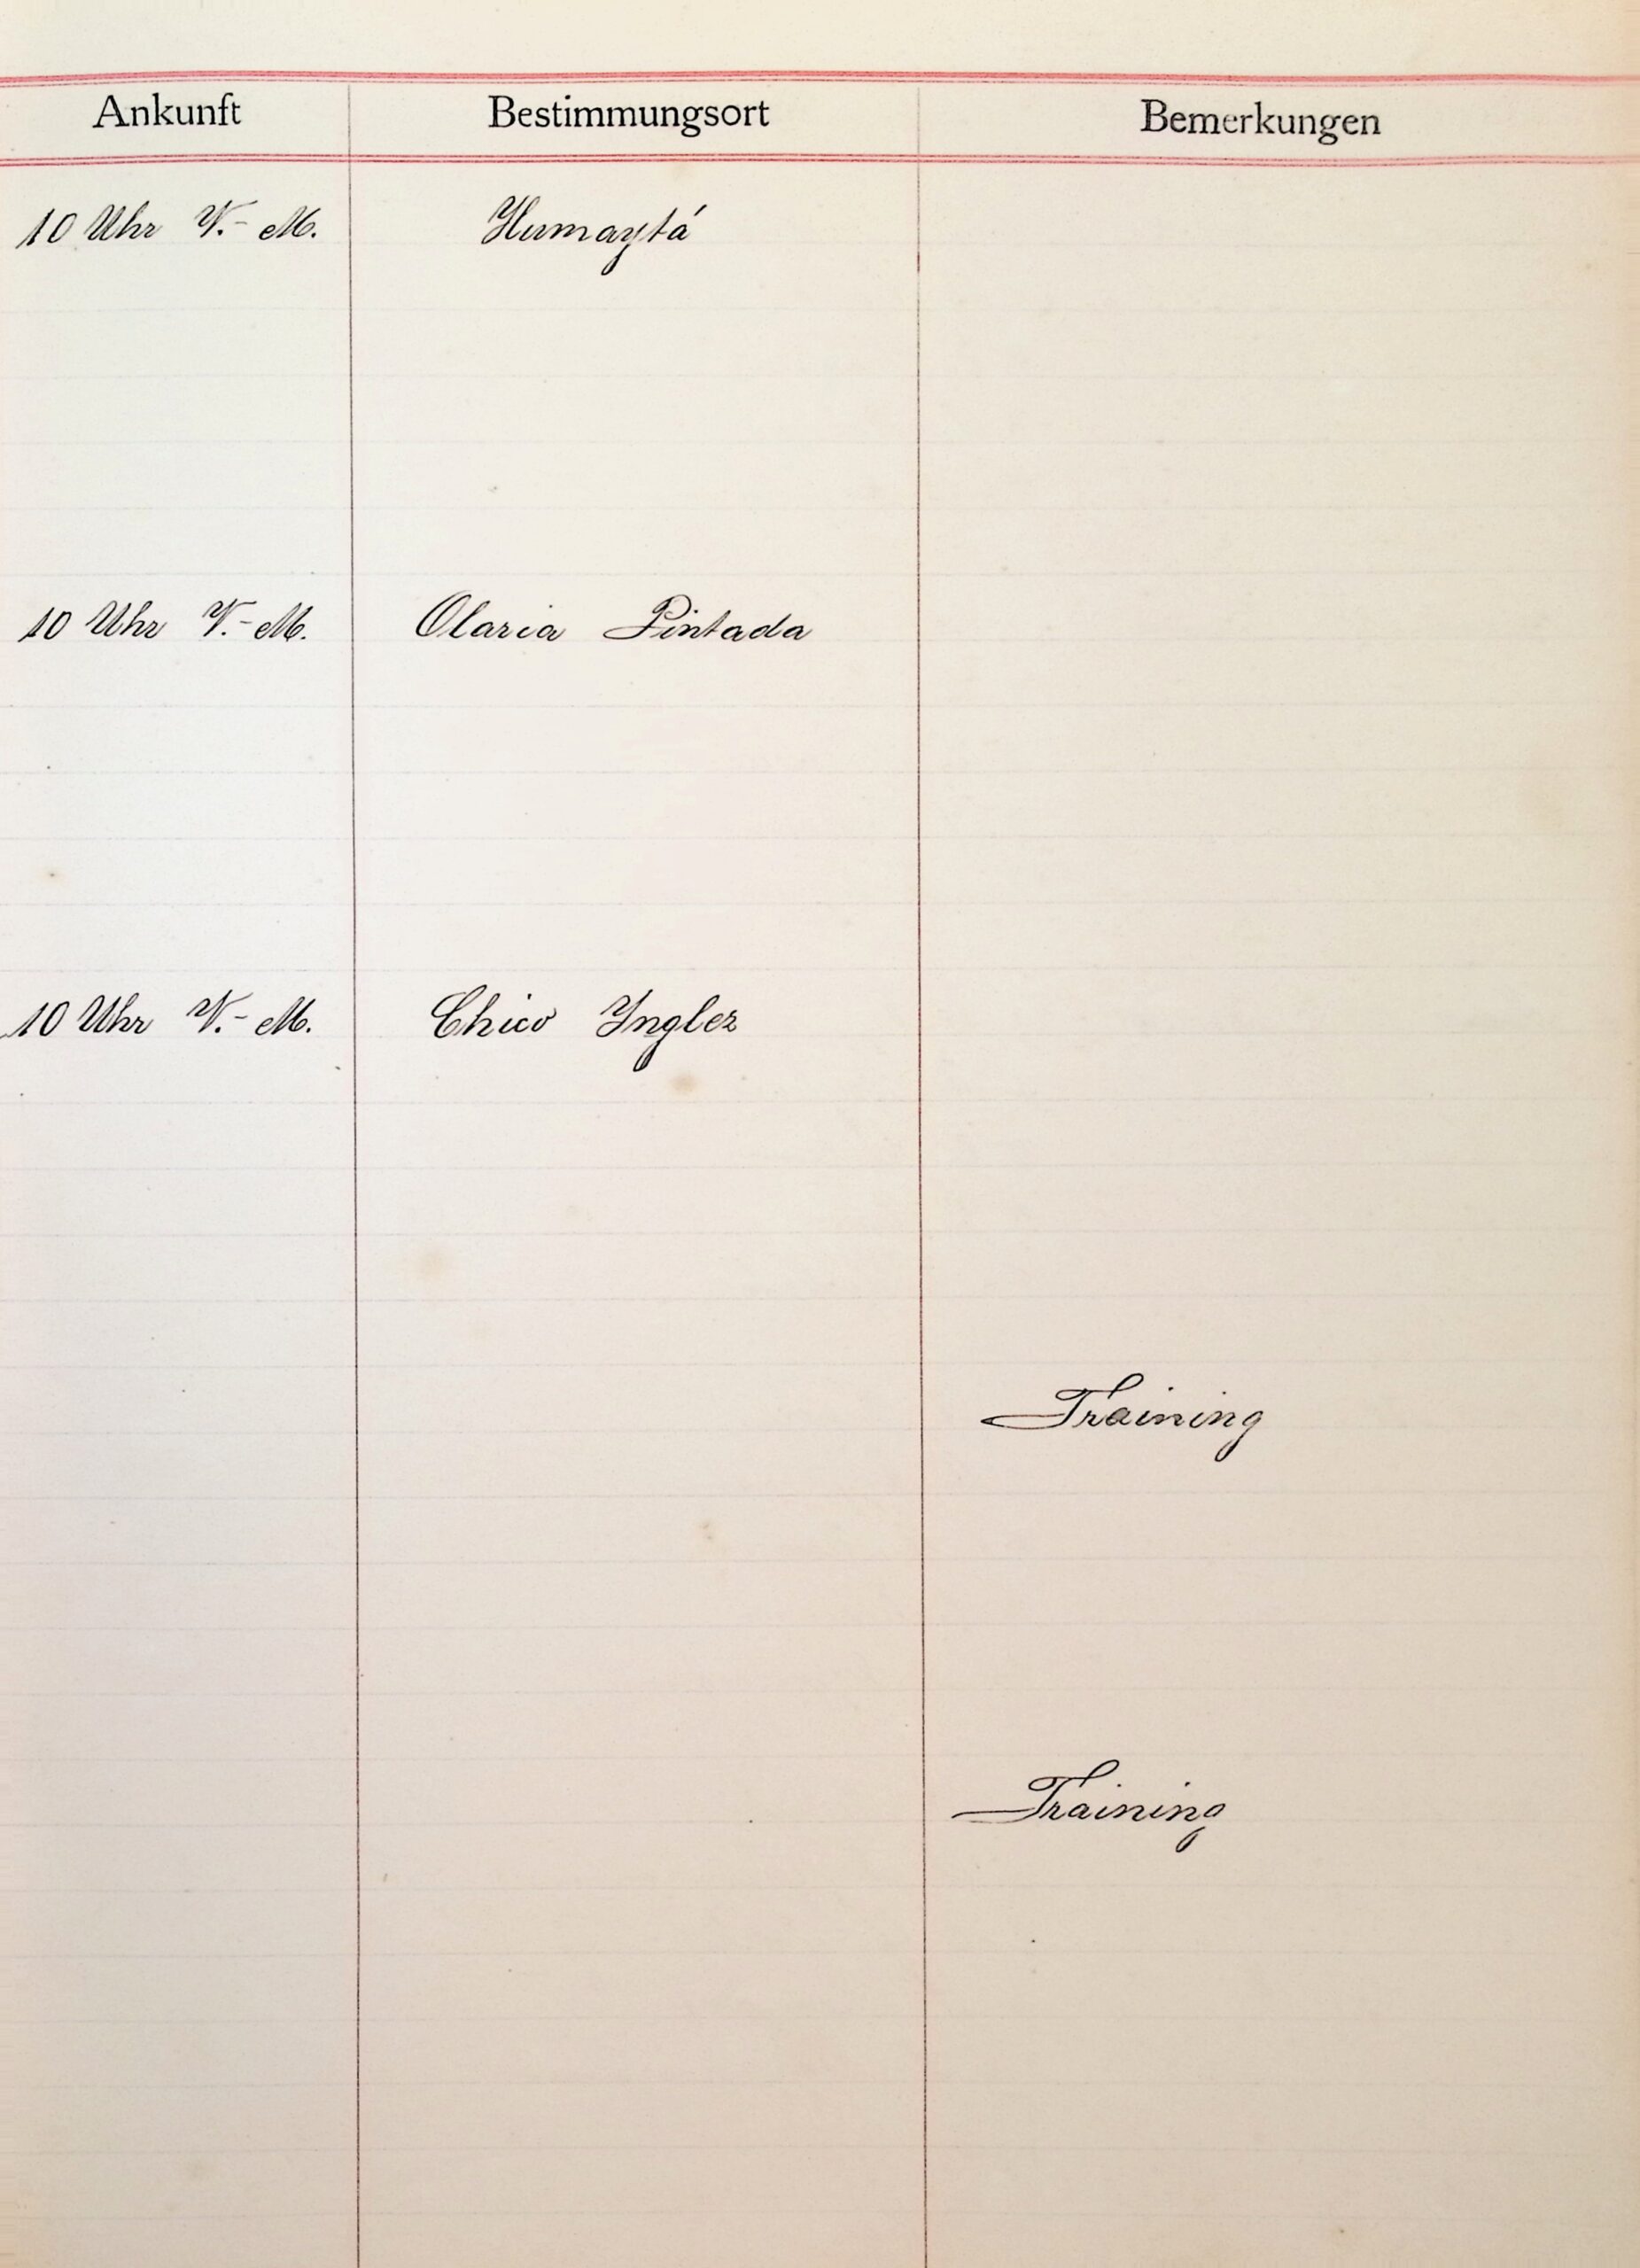 Ankunft Bestimmungsort Bemerkungen
10 Uhr V.-M. Humaytá
10 Uhr V.-M. Olaria Pintada
10 Uhr V.-M. Chico Inglez
Training
Training